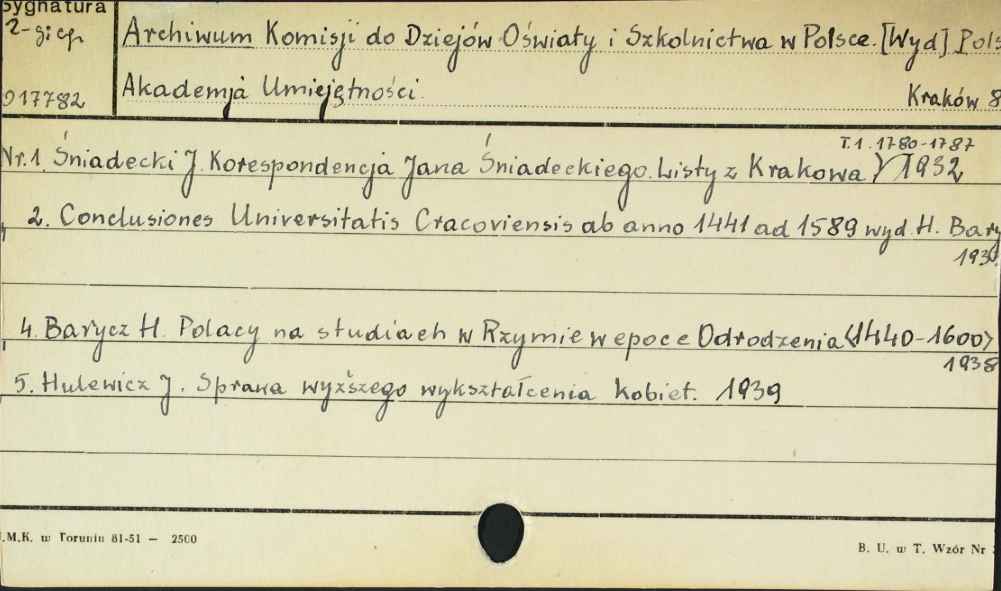 Sygnatura
2-gi egz.
Archiwum Komisji do Dziejów Oświaty i Szkolnictwa w Polsce. [Wyd] Pols
017782
Akademja Umiejętności.
Kraków 8
T.1. 1780-1787
Nr.1. Śniadecki J. Korespondencja Jana Śniadeckiego. Listy z Krakowa 1932
2. Conclusiones Universitatis Cracoviensis ab anno 1441 ad 1589 wyd. H. Bary
193
4. Barycz H. Polacy na studiach w Rzymie w epoce Odrodzenia <1440-1600>
1938
5. Hulewicz J. Sprawa wyższego wykształcenia kobiet. 1939
.M.K. w Toruniu 81-51 — 2500
B. U. w T. Wzór Nr